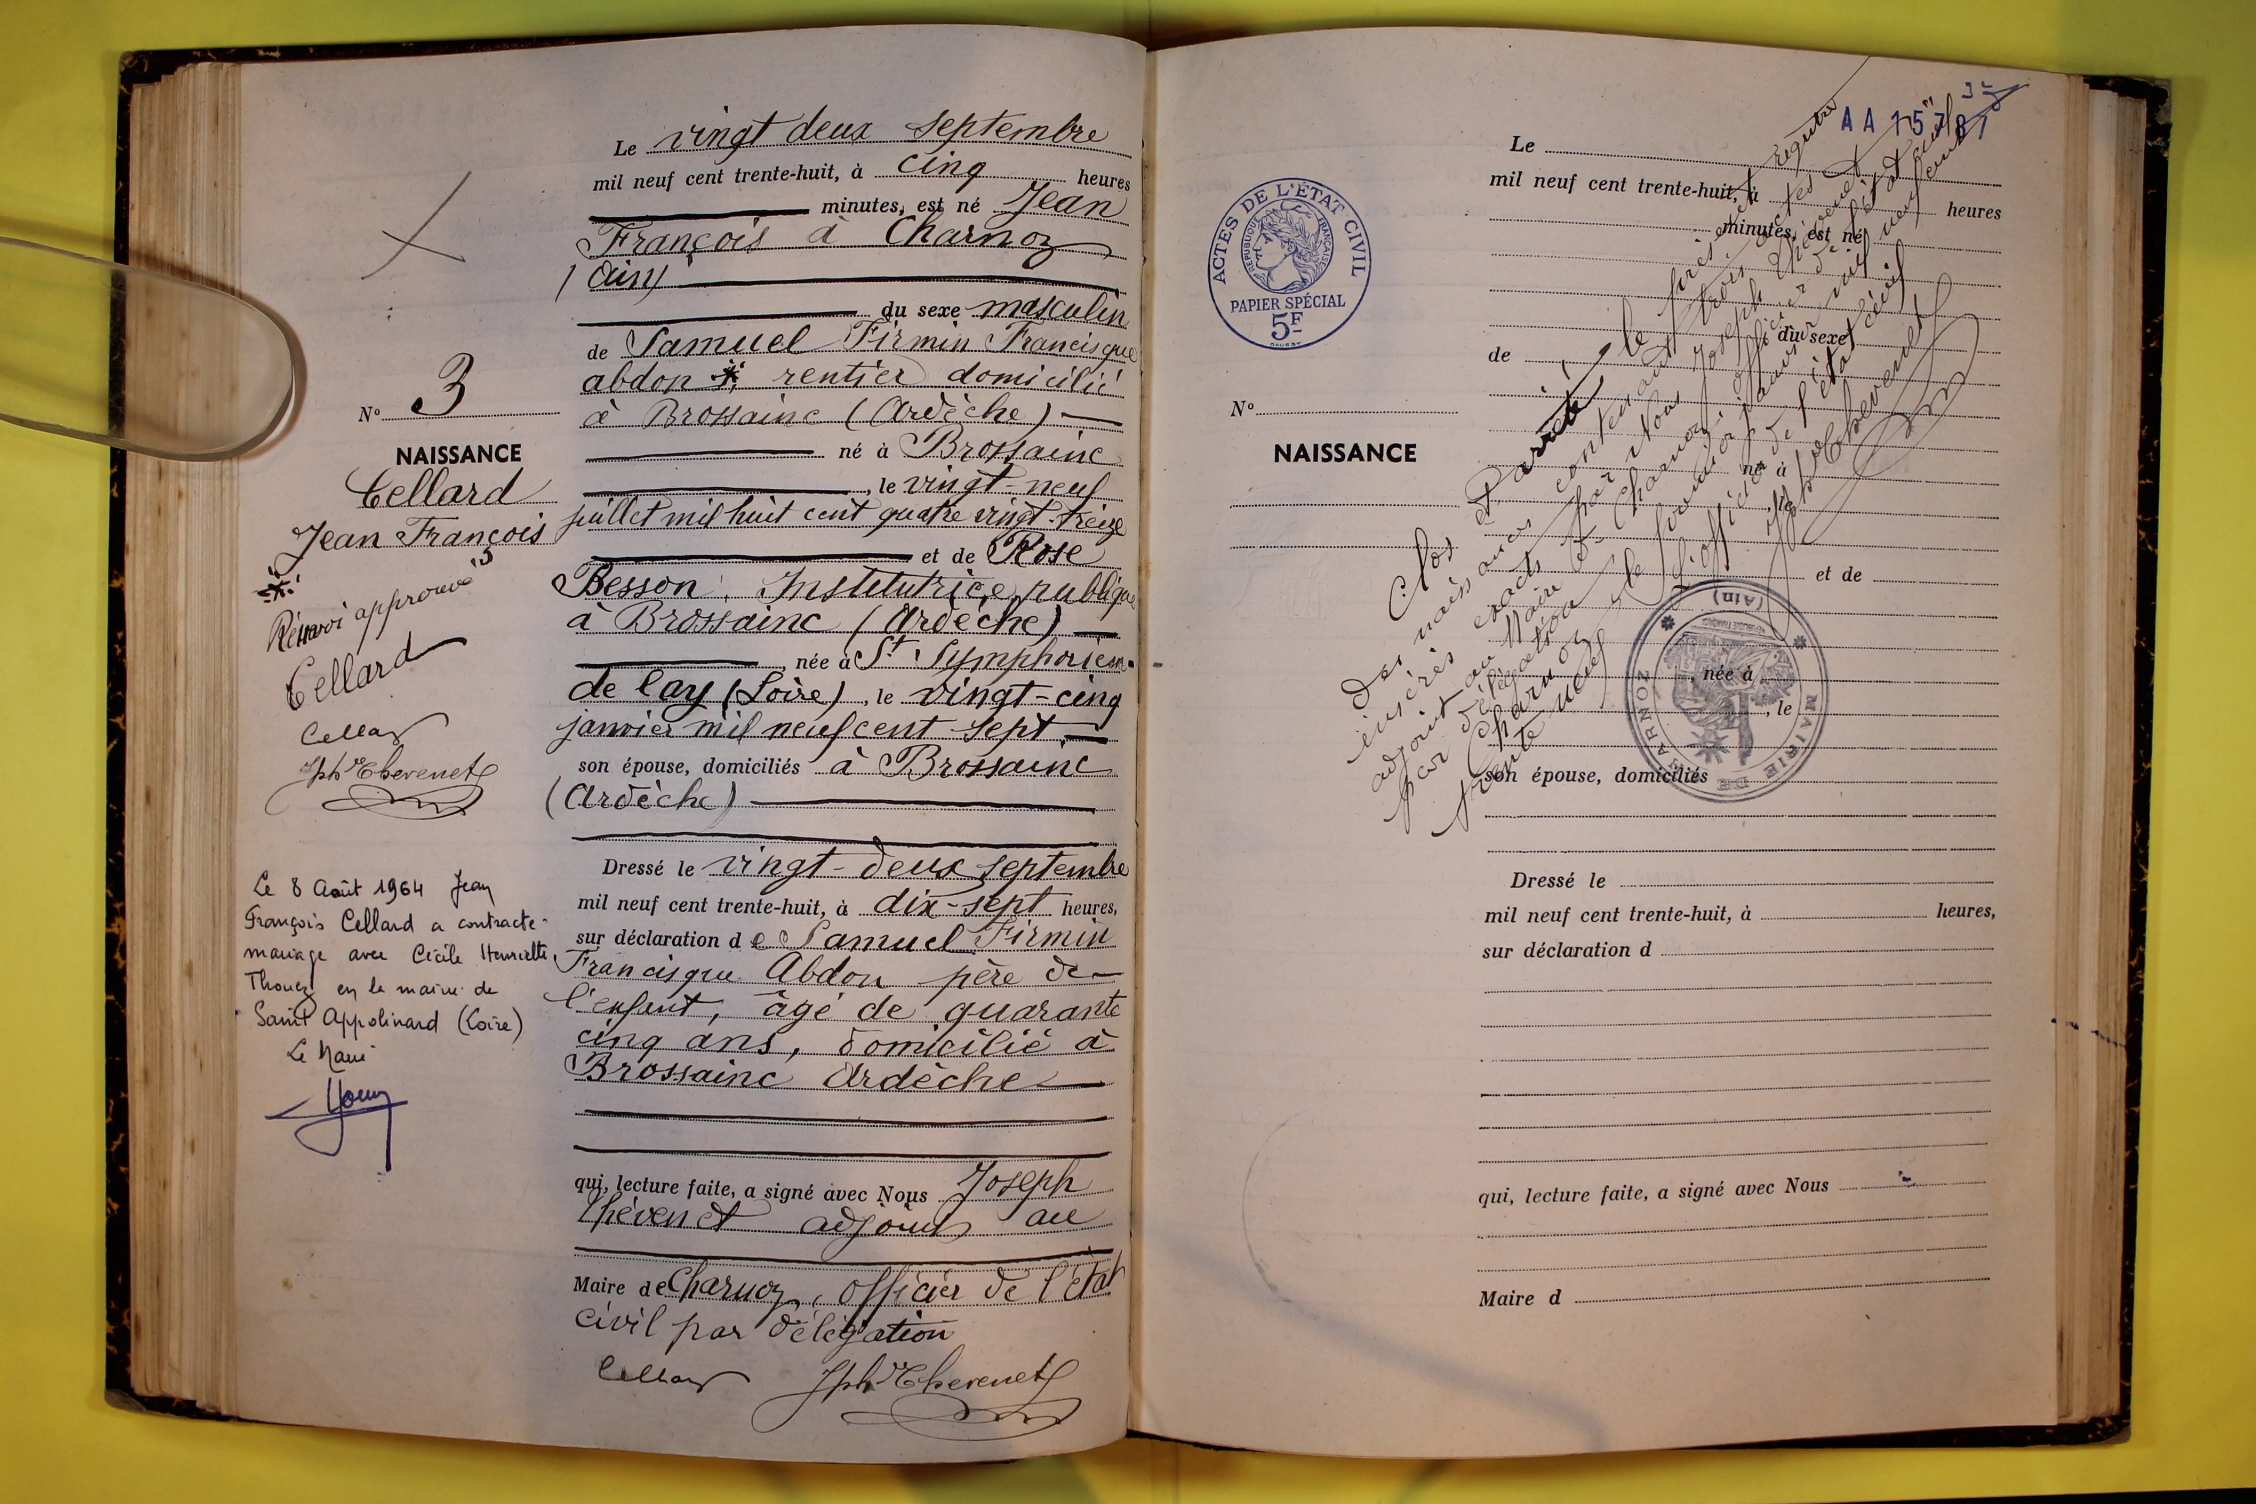 Le vingt deux septembre
mil neuf cent trente-huit, à cinq heures
minutes, est né Jean
François à Charnoz
(Ain)
du sexe masculin
de Samuel Firmin Francisque
abdon * rentier domicilié
à Brossainc (Ardèche)
né à Brossainc
, le vingt-neuf
juillet mil huit cent quatre vingt-treize
et de Rose
Besson, Institutrice publique
à Brossainc (Ardèche)
, née à St Symphorien-
de lay (Loire), le vingt-cinq
janvier mil neuf cent sept
son épouse, domiciliés à Brossainc
(Ardèche)
Dressé le vingt-deux septembre
mil neuf cent trente-huit, à dix-sept heures,
sur déclaration de Samuel Firmin
Francisque Abdon père de
l'enfant, âgé de quarante
cinq ans, domicilié à
Brossainc Ardèche
qui, lecture faite, a signé avec Nous Joseph
Chévenet adjoint au
Maire de Charnoz, officier de l'état
civil par délégation
Cellard Jph Chevenet
No 3
NAISSANCE
Cellard
Jean François
*
Renvoi approuvé
Cellard
Cellard
Jph Chevenet
Le 8 Août 1964 Jean
François Cellard a contracté
mariage avec Cécile Henriette
Thouez en la mairie de
Saint Appolinard (Loire)
Le Maire
AA 15781
ACTES DE L'ÉTAT CIVIL
RÉPUBLIQUE FRANÇAISE
PAPIER SPÉCIAL
5F
No
NAISSANCE
Le
mil neuf cent trente-huit, à
heures
minutes, est né
du sexe
de
né à
, le
et de
, née à
, le
son épouse, domiciliés
Dressé le
mil neuf cent trente-huit, à heures,
sur déclaration d
qui, lecture faite, a signé avec Nous
Maire d
Clos et arrêté, le présent registre
des naissances contenant trois actes
insérés exacts par Nous Joseph Chévenet
adjoint au Maire de Charnoz officier de l'état civil
par délégation
Charnoz le janvier mil neuf cent
trente neuf
L'officier de l'état civil
Jph Chevenet
MAIRIE DE CHARNOZ
(Ain)